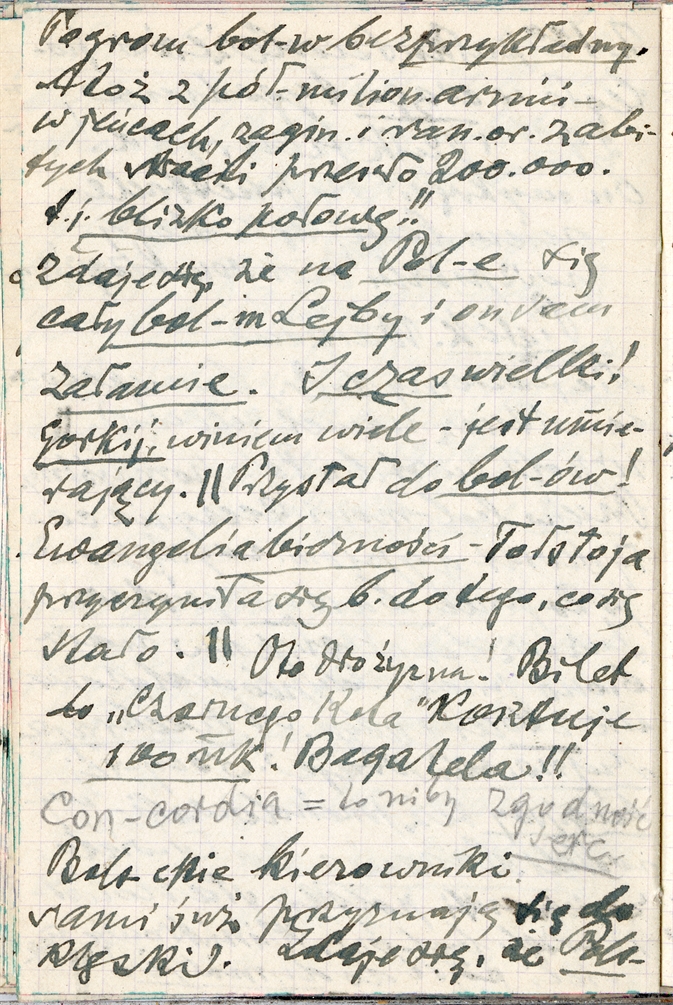 Pogrom bol-w bezprzykładny.
Atoż z pół-milion. armii -
w jeńcach, zagin. i ran. or. zabi-
tych stracili przeszło 200.000.
t. j. blizko połowę!!
Zdaje się, że na Pol-e się
cały bol-m Lejby i
załamie. I czas wielki!
Gorkij, winien wiele - jest umie-
rający. || Przystał do bol-ów!
Ewangelia bierności - Tołstoja
przyczyniła się b. do tego, co się
stało. || Oto drożyzna! Bilet
do „Czarnego Kota" kosztuje
100 mk! Bagatela!!
Con-cordia = to niby zgodność
serc.
Bol-ckie kierowniki
sami już przyznają się do
klęski. Zdaje się, że Pols-